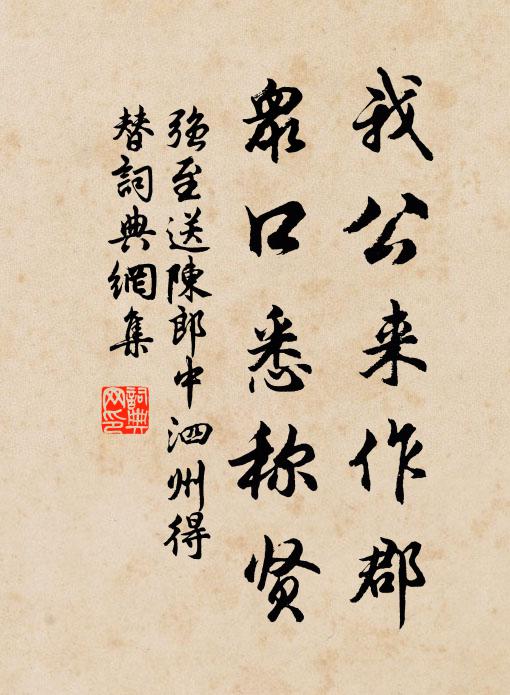 我公来作郡
眾口悉称贤
強至送陳郎中泗州得
替詞典網集
詞典
网印